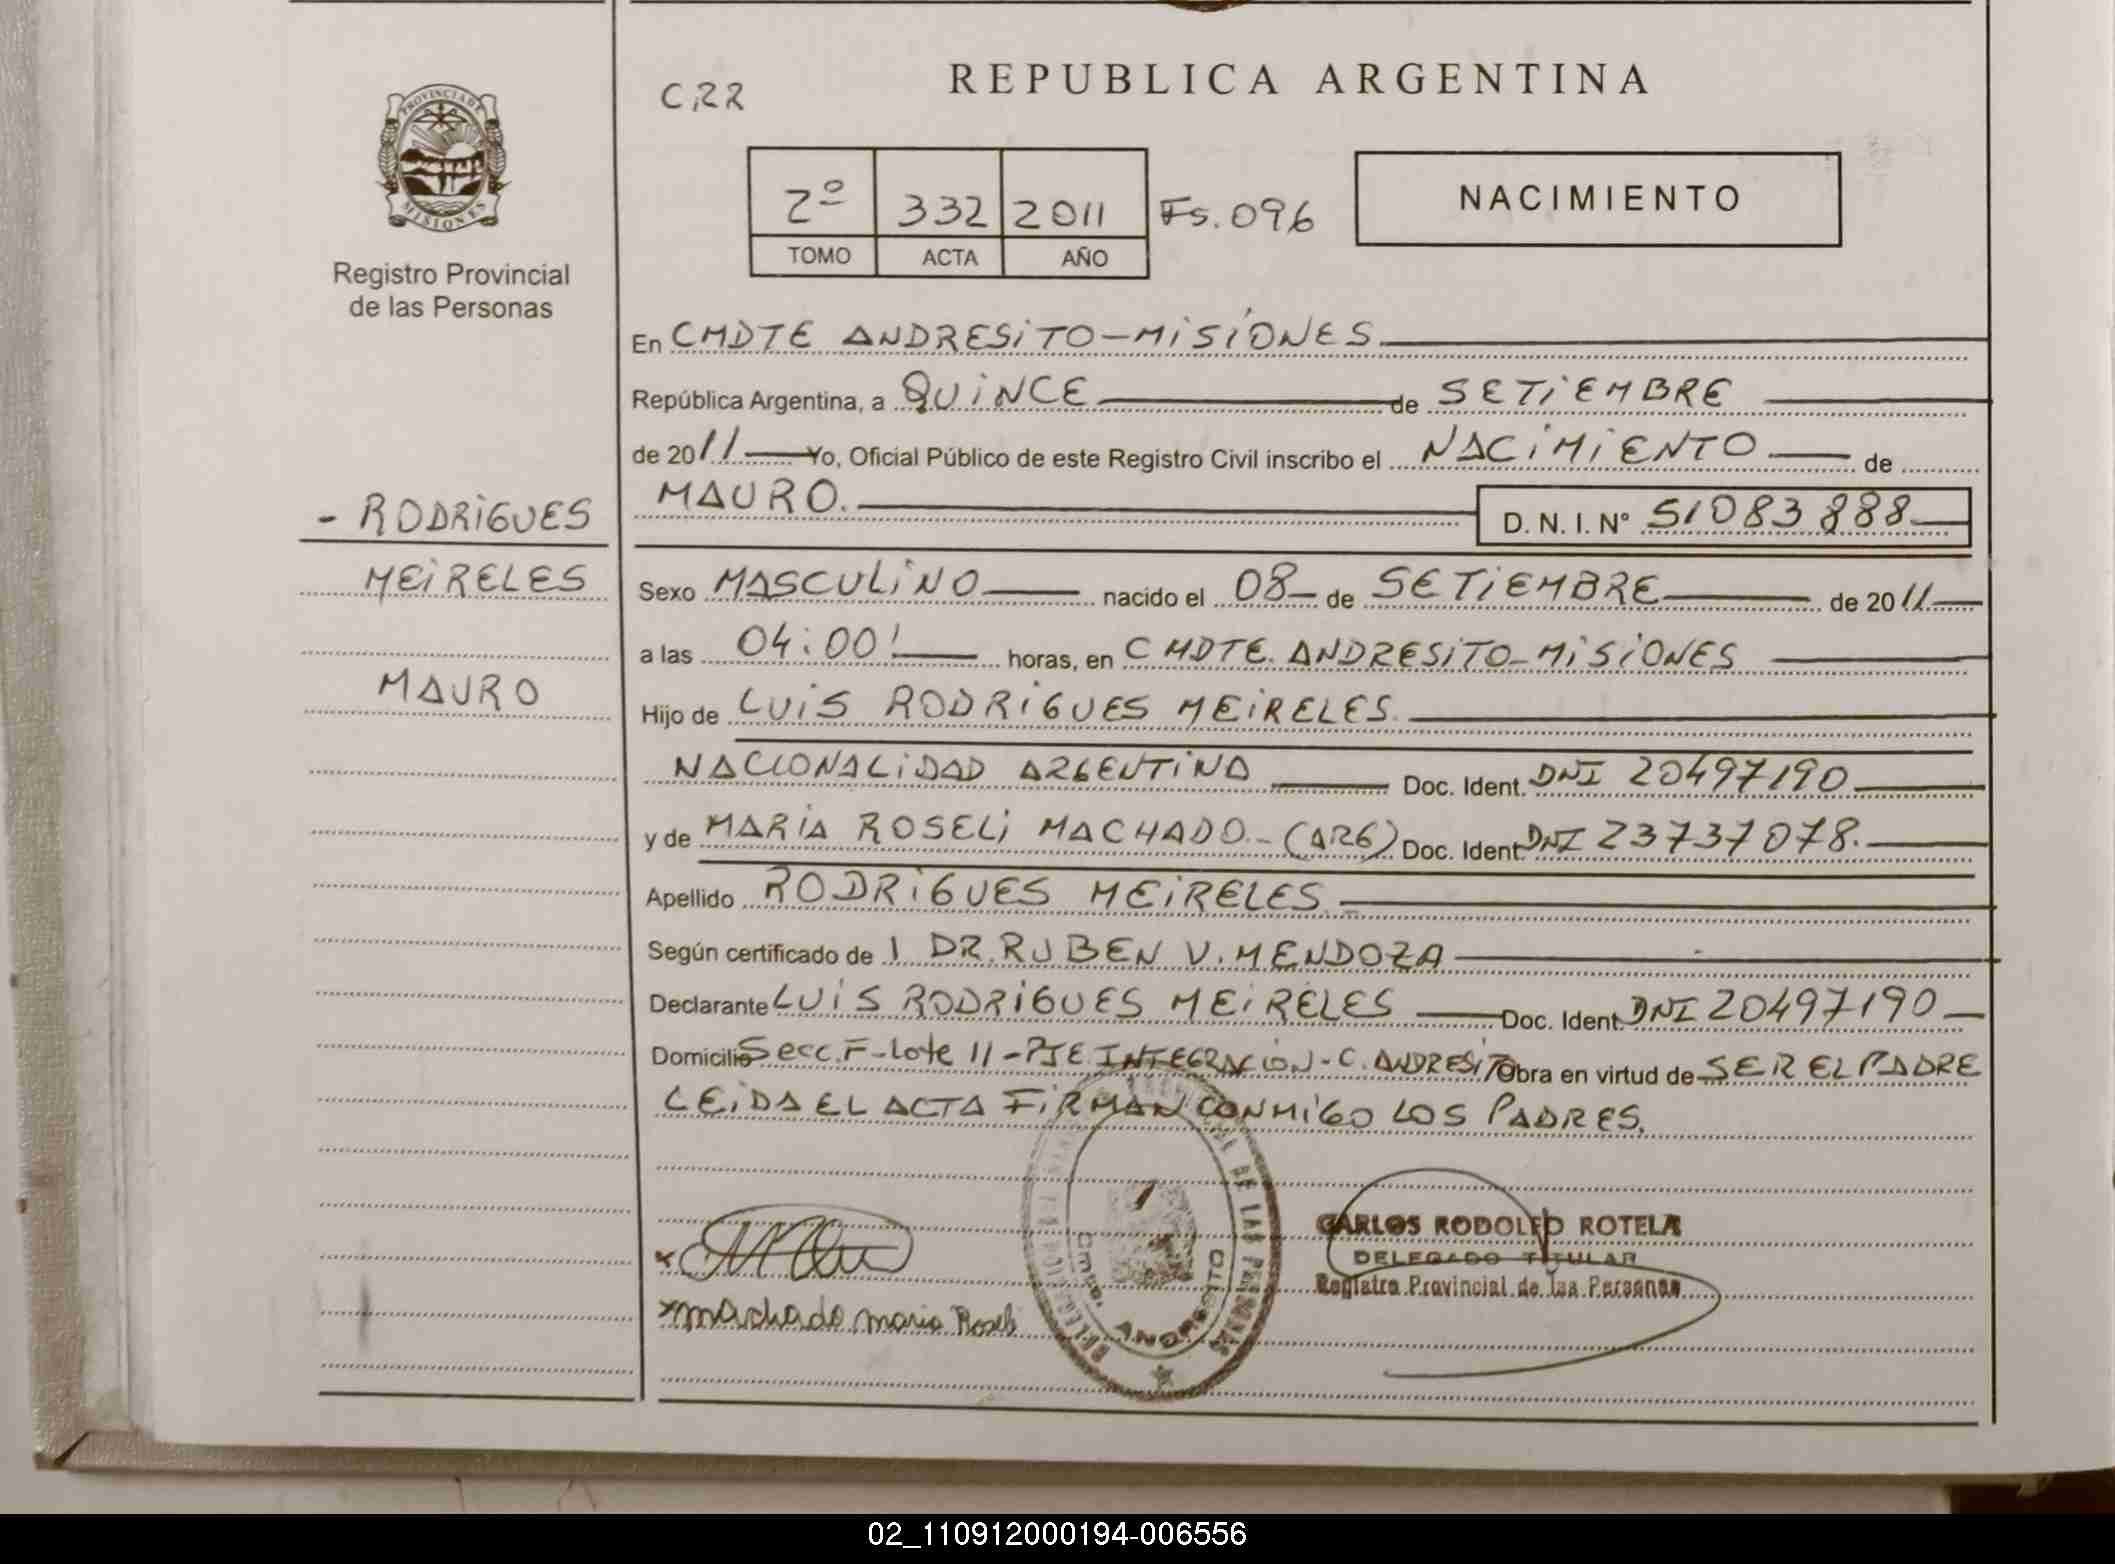 PROVINCIA DE
MISIONES
Registro Provincial
de las Personas
- RODRIGUES
MEIRELES
MAURO
CRR
REPUBLICA ARGENTINA
2º 332 2011 Fs. 096
TOMO ACTA AÑO
NACIMIENTO
En CMDTE ANDRESITO-MISIONES
República Argentina, a QUINCE de SETIEMBRE
de 2011 Yo, Oficial Público de este Registro Civil inscribo el NACIMIENTO de
MAURO. D. N. I. Nº 51083888
Sexo MASCULINO nacido el 08 de SETIEMBRE de 2011
a las 04:00' horas, en CMDTE. ANDRESITO-MISIONES
Hijo de LUIS RODRIGUES MEIRELES
NACIONALIDAD ARGENTINA Doc. Ident. DNI 20497190
y de MARIA ROSELI MACHADO.- (ARG) Doc. Ident. DNI 23737078.
Apellido RODRIGUES MEIRELES
Según certificado de 1 DR. RUBEN V. MENDOZA
Declarante LUIS RODRIGUES MEIRELES Doc. Ident. DNI 20497190
Domicilio Secc. F-Lote 11-PJE INTEGRACION-C. ANDRESITO Obra en virtud de SER EL PADRE
LEIDA EL ACTA FIRMAN CONMIGO LOS PADRES.
DE LAS PERSONAS
CMDO. ANDRESITO
CARLOS RODOLFO ROTELA
DELEGADO TITULAR
Registro Provincial de las Personas
x machado maria Roseli
02_110912000194-006556